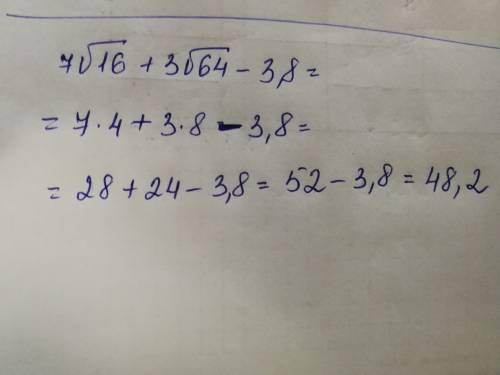 7√16 + 3√64 - 3,8 =
= 7·4 + 3·8 - 3,8 =
= 28 + 24 - 3,8 = 52 - 3,8 = 48,2